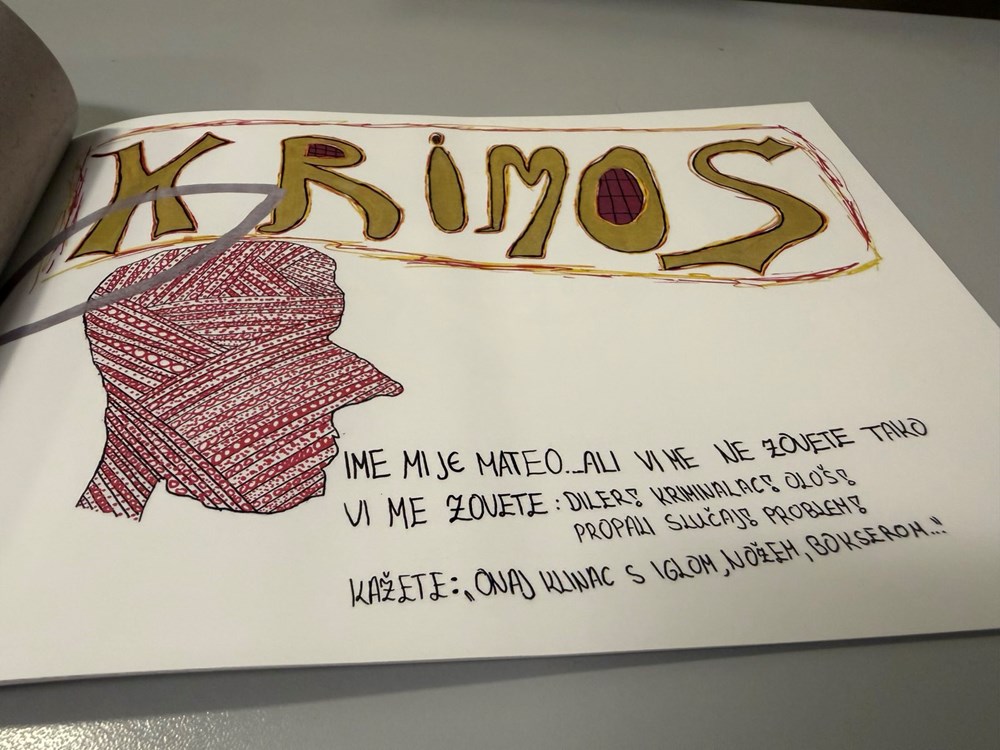 KRiMOS
IME MI JE MATEO...ALI VI ME NE ZOVETE TAKO
VI ME ZOVETE: DILER! KRIMINALAC! OLOŠ!
PROPALI SLUČAJ! PROBLEM!
KAŽETE: „ONAJ KLINAC S IGLOM, NOŽEM, BOKSEROM..."